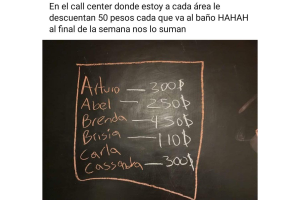 En el call center donde estoy a cada área le
descuentan 50 pesos cada que va al baño HAHAH
al final de la semana nos lo suman
Arturo — 300$
Abel — 250$
Brenda — 450$
Brisia — 110$
Carla
Cassandra — 300$